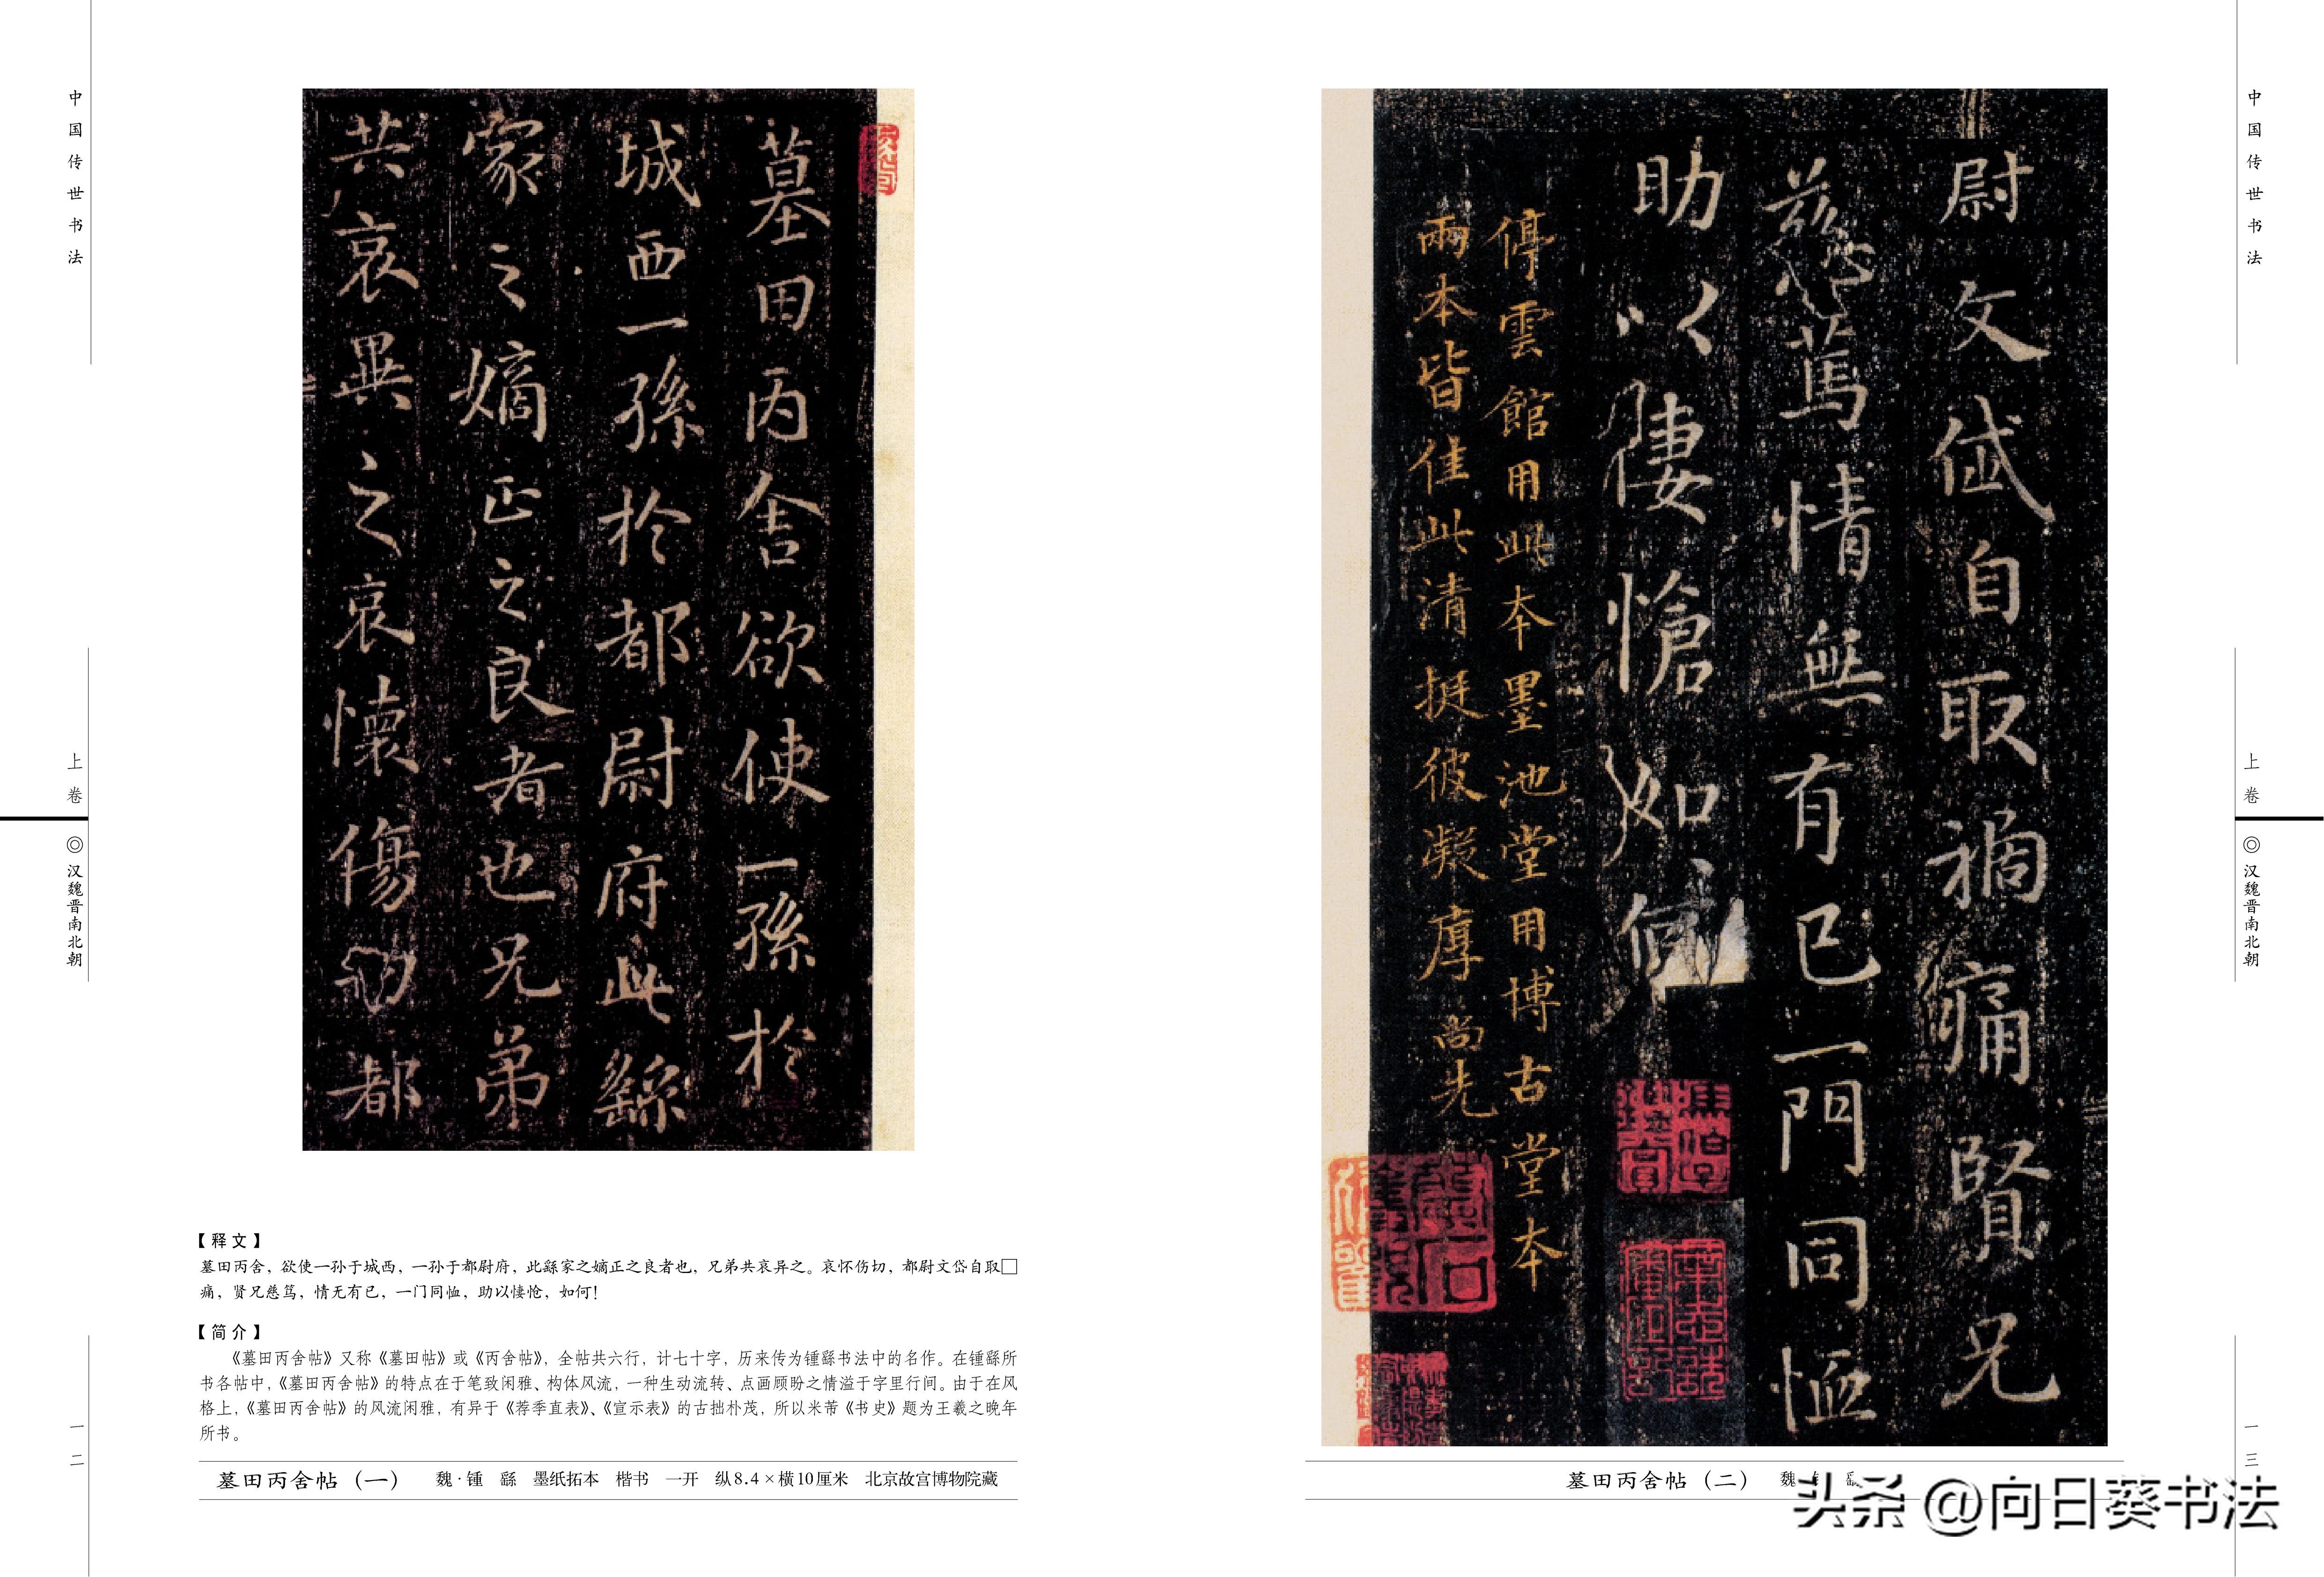 中国传世书法
上卷
◎汉魏晋南北朝
一二
墓田丙舍欲使一孫於
城西一孫於都尉府此繇
家之嫡正之良者也兄弟
共哀異之哀懷傷切都
【释文】
墓田丙舍，欲使一孙于城西，一孙于都尉府，此繇家之嫡正之良者也，兄弟共哀异之。哀怀伤切，都尉文岱自取□
痛，贤兄慈笃，情无有已，一门同恤，助以悽怆，如何！
【简介】
《墓田丙舍帖》又称《墓田帖》或《丙舍帖》，全帖共六行，计七十字，历来传为锺繇书法中的名作。在锺繇所
书各帖中，《墓田丙舍帖》的特点在于笔致闲雅、构体风流，一种生动流转、点画顾盼之情溢于字里行间。由于在风
格上，《墓田丙舍帖》的风流闲雅，有异于《荐季直表》、《宣示表》的古拙朴茂，所以米芾《书史》题为王羲之晚年
所书。
墓田丙舍帖（一） 魏·锺 繇 墨纸拓本 楷书 一开 纵8.4×横10厘米 北京故宫博物院藏
尉文岱自取禍痛賢兄
慈篤情無有已一門同恤
助以悽愴如何
停雲館用此本墨池堂用博古堂本
兩本皆佳此清挺彼凝厚尚先
墓田丙舍帖（二） 魏
中国传世书法
上卷
◎汉魏晋南北朝
一三
头条 @向日葵书法